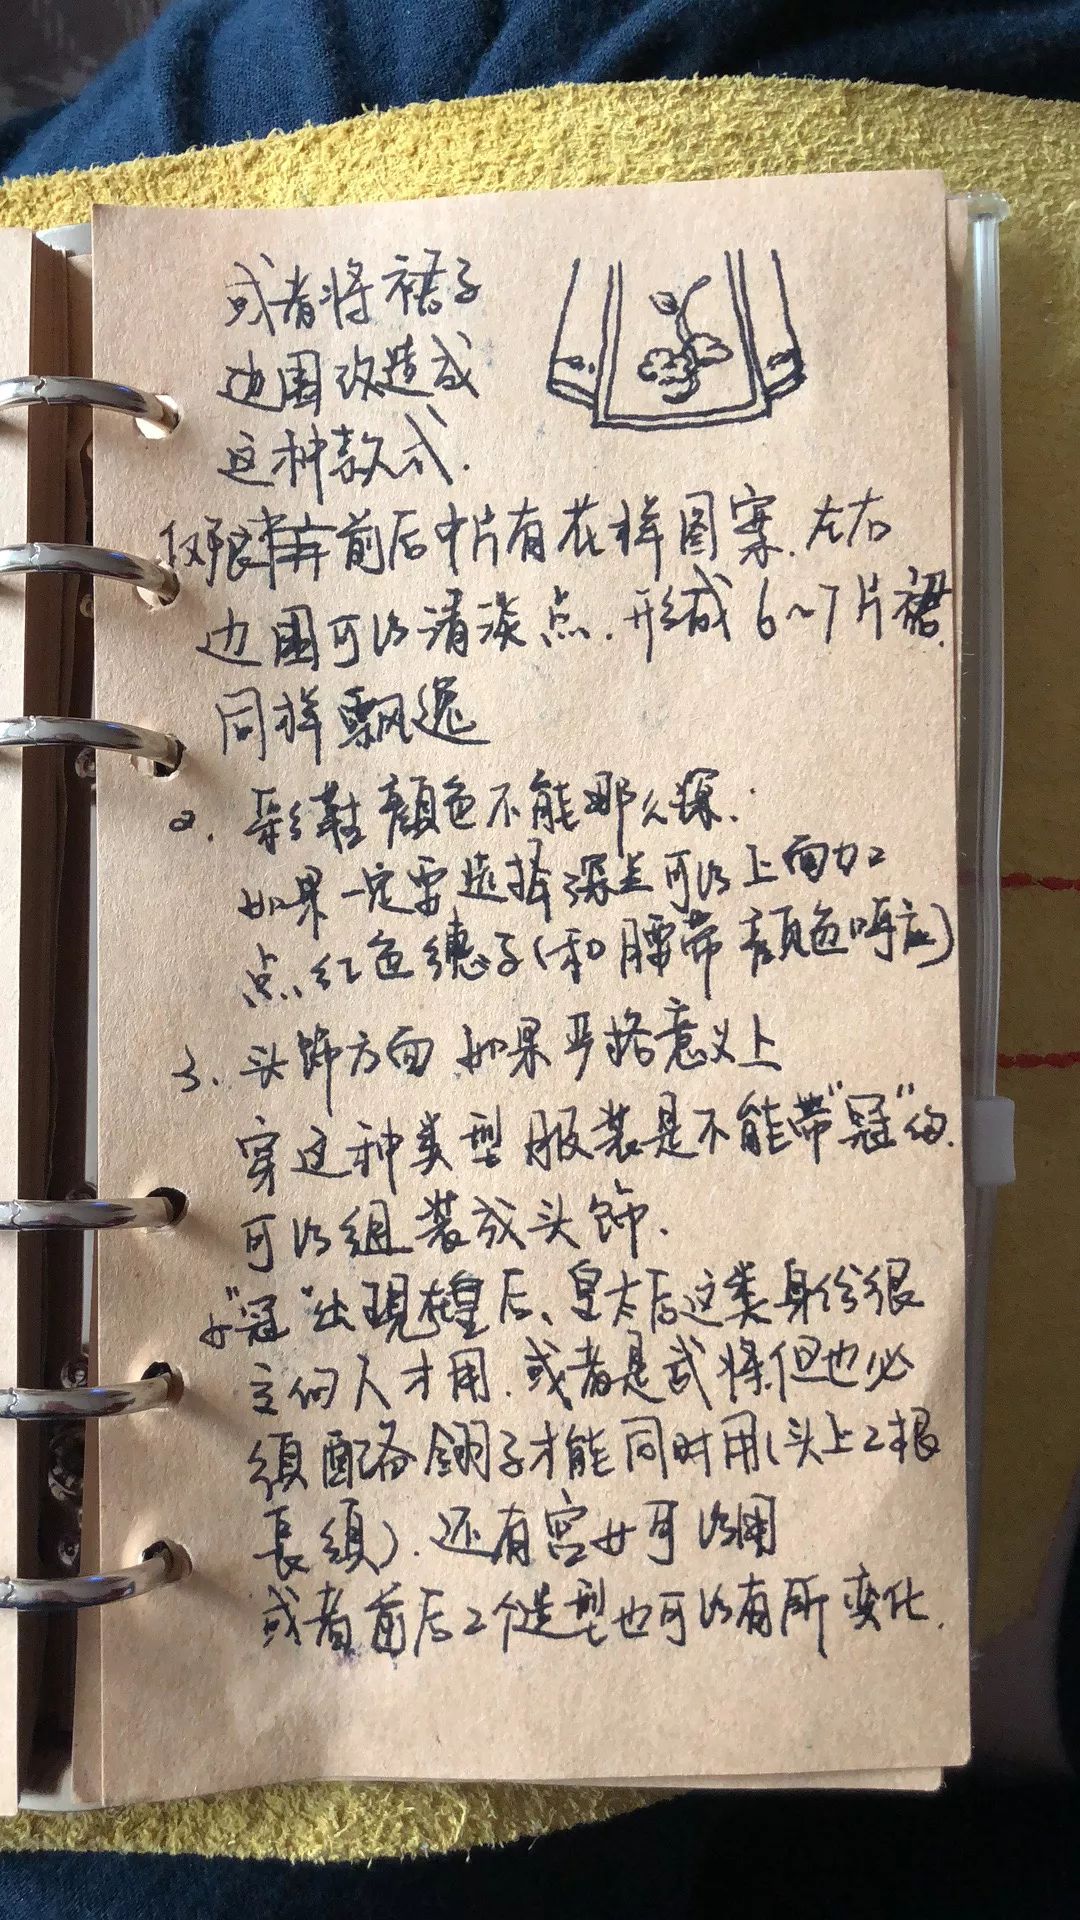 或者将裙子
边围改造成
这种款式.
仅保障前后中片有花样图案.左右
边围可以清淡点.形成6~7片裙.
同样飘逸
2. 彩鞋颜色不能那么深.
如果一定要选择深些可以上面加
点红色穗子(和腰带颜色呼应)
3、头饰方面 如果严格意义上
穿这种类型服装是不能带"冠"的.
可以组装成头饰.
"冠"出现在皇后、皇太后这类身份很
的人才用.或者是武将,但也必
须配备翎子才能同时用(头上2根
長須).还有宫女可以用
或者前后2个造型也可以有所变化.